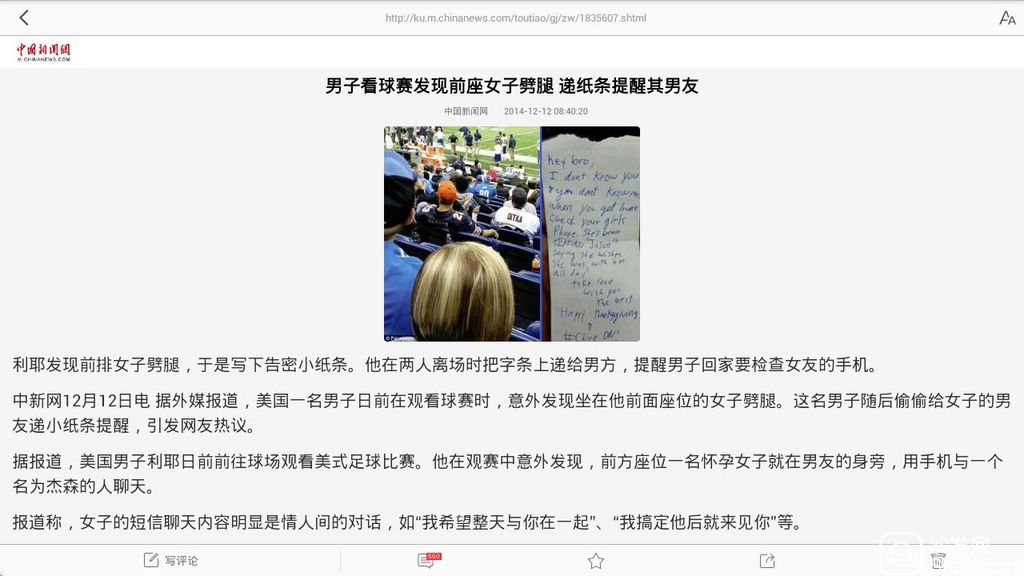 http://ku.m.chinanews.com/toutiao/gj/zw/1835607.shtml
AA
中國新聞網
M.CHINANEWS.COM
男子看球赛发现前座女子劈腿 递纸条提醒其男友
中国新闻网 2014-12-12 08:40:20
DITKA
hey bro,
I dont know you
& you dont know me
when you get home
check your girls
Phone. She's been
TEXTING "Jason"
saying she wishes
she was with him
all day!
take care
wish you
the best
Happy Thanksgiving
© Facebook
利耶发现前排女子劈腿，于是写下告密小纸条。他在两人离场时把字条上递给男方，提醒男子回家要检查女友的手机。
中新网12月12日电 据外媒报道，美国一名男子日前在观看球赛时，意外发现坐在他前面座位的女子劈腿。这名男子随后偷偷给女子的男
友递小纸条提醒，引发网友热议。
据报道，美国男子利耶日前前往球场观看美式足球比赛。他在观赛中意外发现，前方座位一名怀孕女子就在男友的身旁，用手机与一个
名为杰森的人聊天。
报道称，女子的短信聊天内容明显是情人间的对话，如“我希望整天与你在一起”、“我搞定他后就来见你”等。
写评论
660
沙发网